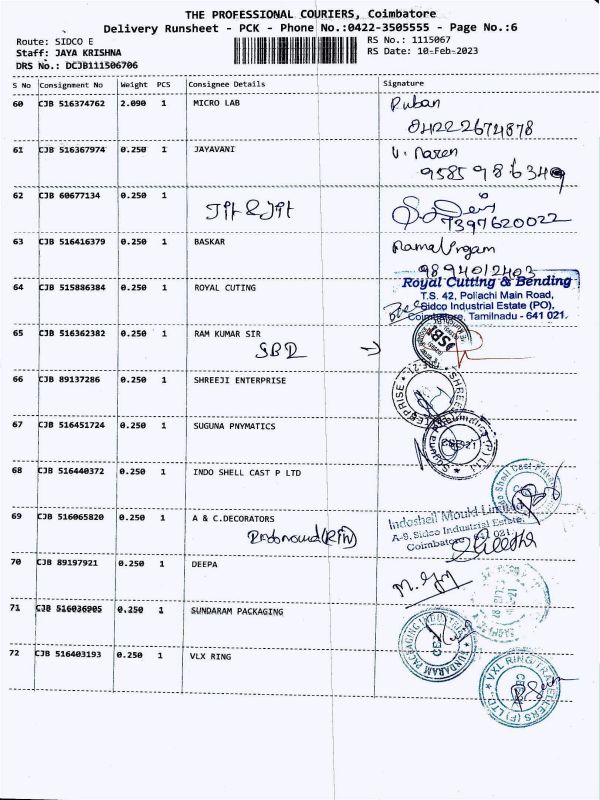 THE PROFESSIONAL COURIERS, Coimbatore
Delivery Runsheet - PCK - Phone No.:0422-3505555 - Page No.:6
Route: SIDCO E
RS No.: 1115067
Staff: JAYA KRISHNA
RS Date: 10-Feb-2023
DRS No.: DCJB111506706
S No Consignment No Weight PCS Consignee Details Signature
60 CJB 516374762 2.090 1 MICRO LAB Ruban
04222674878
61 CJB 516367974 0.250 1 JAYAVANI V. Naren
62 CJB 60677134 0.250 1
7397620022
63 CJB 516416379 0.250 1 BASKAR
9894012403
64 CJB 515886384 0.250 1 ROYAL CUTING Royal Cutting & Bending
T.S. 42, Pollachi Main Road,
Sidco Industrial Estate (PO),
Coimbatore, Tamilnadu - 641 021.
65 CJB 516362382 0.250 1 RAM KUMAR SIR
SBD →
66 CJB 89137286 0.250 1 SHREEJI ENTERPRISE
67 CJB 516451724 0.250 1 SUGUNA PNYMATICS
68 CJB 516440372 0.250 1 INDO SHELL CAST P LTD
69 CJB 516065820 0.250 1 A & C.DECORATORS
Indoshell Mould Limited
A-9, Sidco Industrial Estate,
Coimbatore - 641 021.
70 CJB 89197921 0.250 1 DEEPA
71 CJB 516036905 0.250 1 SUNDARAM PACKAGING
SUNDARAM PACKAGING INDUSTRIES
72 CJB 516403193 0.250 1 VLX RING
VXL RING TRAVELLERS (P) LTD